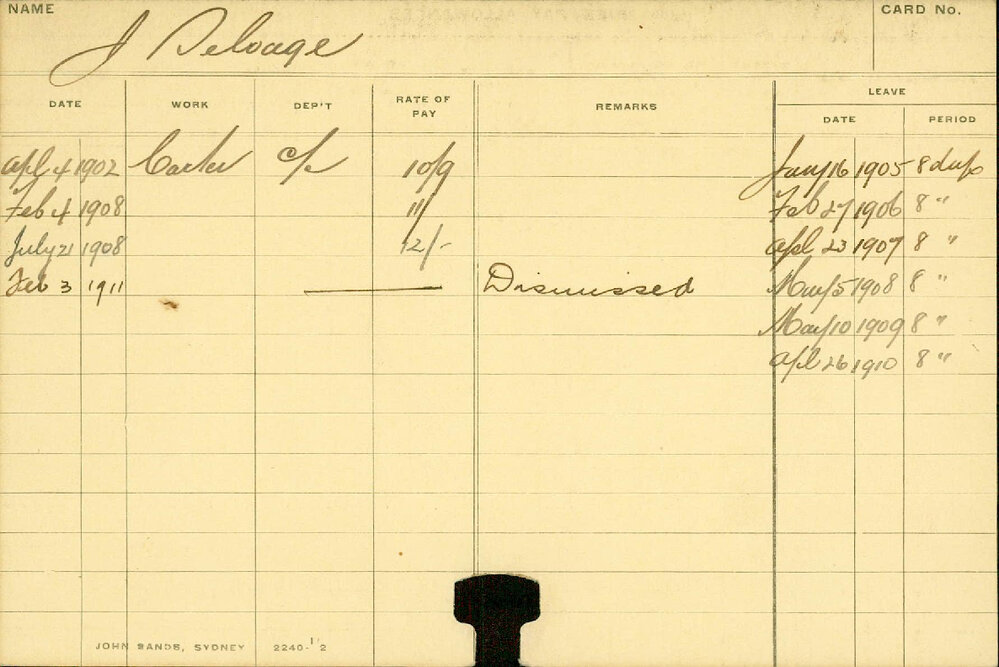 NAME
CARD No.
J Delvage
DATE WORK DEP'T RATE OF PAY REMARKS LEAVE
DATE PERIOD
Apl 4 1902 Carter C/c 10/9 Jany 16 1905 8 days
Feb 4 1908 11/ Feb 27 1906 8 "
July 21 1908 12/- Apl 23 1907 8 "
Feb 3 1911 Dismissed May 5 1908 8 "
May 10 1909 8 "
Apl 26 1910 8 "
JOHN SANDS, SYDNEY 2240-1/2